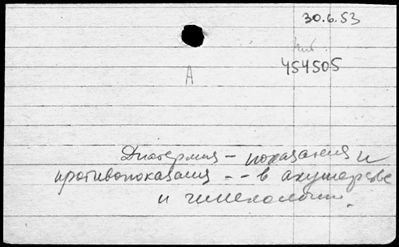 30.6.53
454505
А
Диатермия – показания и
противопоказания -- в акушерстве
и гинекологии.